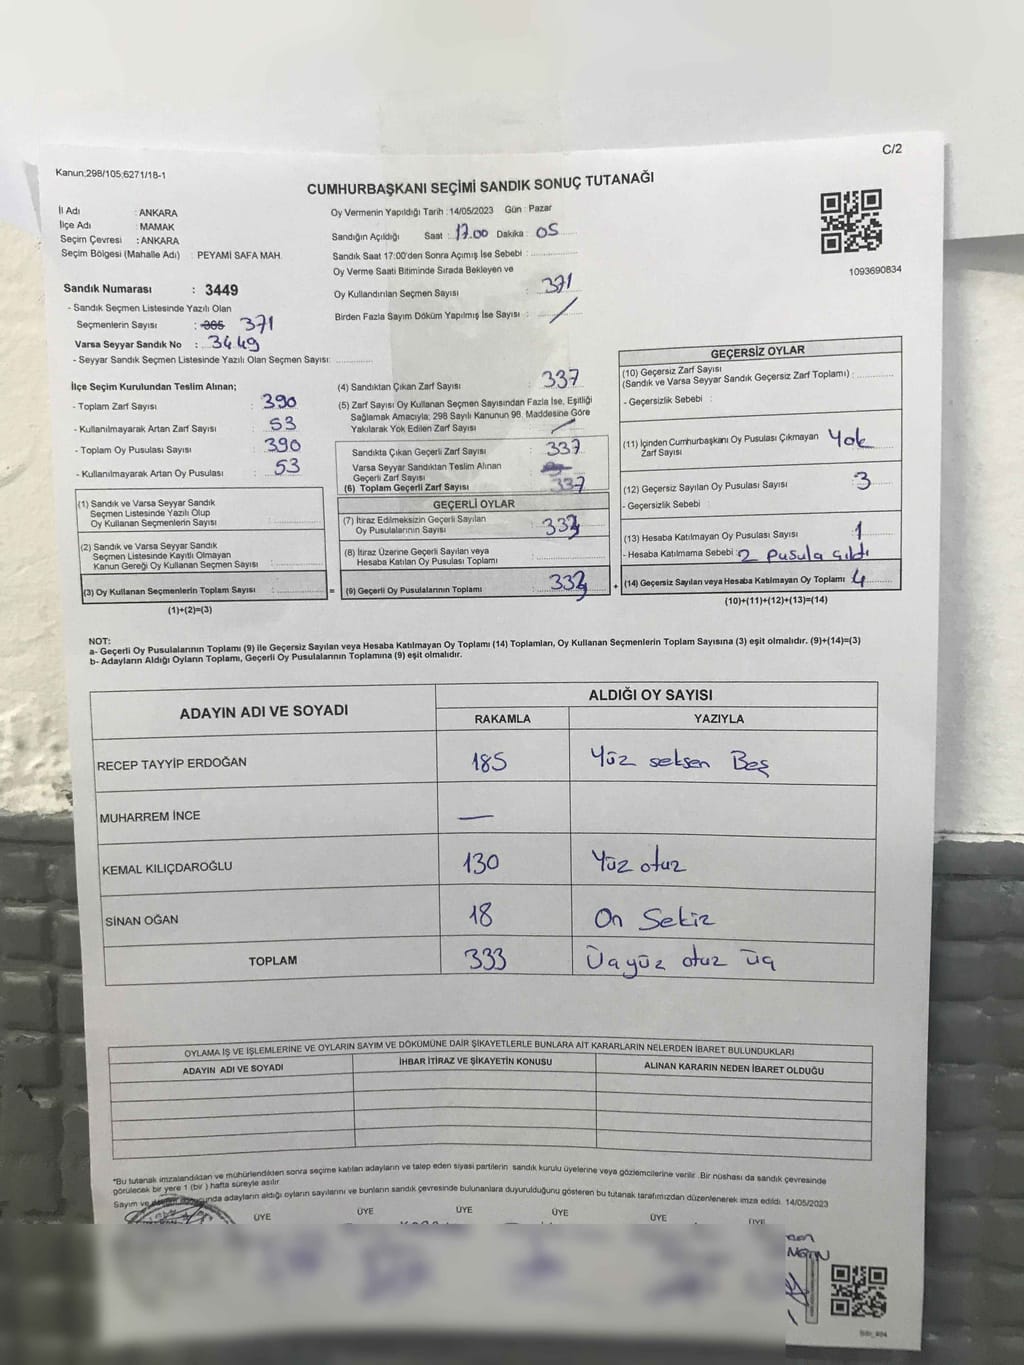 C/2
Kanun:298/105;6271/18-1
CUMHURBAŞKANI SEÇİMİ SANDIK SONUÇ TUTANAĞI
İl Adı : ANKARA
İlçe Adı : MAMAK
Seçim Çevresi : ANKARA
Seçim Bölgesi (Mahalle Adı) : PEYAMİ SAFA MAH.
Oy Vermenin Yapıldığı Tarih :14/05/2023 Gün : Pazar
Sandığın Açıldığı Saat : 17.00 Dakika : 05
Sandık Saat 17:00'den Sonra Açımış İse Sebebi :
Oy Verme Saati Bitiminde Sırada Bekleyen ve
Oy Kullandırılan Seçmen Sayısı : 371
Birden Fazla Sayım Döküm Yapılmış İse Sayısı : /
1093690834
Sandık Numarası : 3449
- Sandık Seçmen Listesinde Yazılı Olan
Seçmenlerin Sayısı : 371
Varsa Seyyar Sandık No : 3449
- Seyyar Sandık Seçmen Listesinde Yazılı Olan Seçmen Sayısı:
İlçe Seçim Kurulundan Teslim Alınan;
- Toplam Zarf Sayısı : 390
- Kullanılmayarak Artan Zarf Sayısı : 53
- Toplam Oy Pusulası Sayısı : 390
- Kullanılmayarak Artan Oy Pusulası : 53
(1) Sandık ve Varsa Seyyar Sandık
Seçmen Listesinde Yazılı Olup
Oy Kullanan Seçmenlerin Sayısı :
(2) Sandık ve Varsa Seyyar Sandık
Seçmen Listesinde Kayıtlı Olmayan
Kanun Gereği Oy Kullanan Seçmen Sayısı :
(3) Oy Kullanan Seçmenlerin Toplam Sayısı : =
(1)+(2)=(3)
(4) Sandıktan Çıkan Zarf Sayısı : 337
(5) Zarf Sayısı Oy Kullanan Seçmen Sayısından Fazla İse, Eşitliği
Sağlamak Amacıyla; 298 Sayılı Kanunun 98. Maddesine Göre
Yakılarak Yok Edilen Zarf Sayısı : /
Sandıkta Çıkan Geçerli Zarf Sayısı : 337
Varsa Seyyar Sandıktan Teslim Alınan
Geçerli Zarf Sayısı :
(6) Toplam Geçerli Zarf Sayısı : 337
GEÇERLİ OYLAR
(7) İtiraz Edilmeksizin Geçerli Sayılan
Oy Pusulalarının Sayısı : 333
(8) İtiraz Üzerine Geçerli Sayılan veya
Hesaba Katılan Oy Pusulası Toplamı :
(9) Geçerli Oy Pusulalarının Toplamı : 333 +
GEÇERSİZ OYLAR
(10) Geçersiz Zarf Sayısı
(Sandık ve Varsa Seyyar Sandık Geçersiz Zarf Toplamı) :
- Geçersizlik Sebebi :
(11) İçinden Cumhurbaşkanı Oy Pusulası Çıkmayan
Zarf Sayısı : Yok
(12) Geçersiz Sayılan Oy Pusulası Sayısı : 3
- Geçersizlik Sebebi :
(13) Hesaba Katılmayan Oy Pusulası Sayısı : 1
- Hesaba Katılmama Sebebi : 2 pusula çıktı
(14) Geçersiz Sayılan veya Hesaba Katılmayan Oy Toplamı : 4
(10)+(11)+(12)+(13)=(14)
NOT:
a- Geçerli Oy Pusulalarının Toplamı (9) ile Geçersiz Sayılan veya Hesaba Katılmayan Oy Toplamı (14) Toplamları, Oy Kullanan Seçmenlerin Toplam Sayısına (3) eşit olmalıdır. (9)+(14)=(3)
b- Adayların Aldığı Oyların Toplamı, Geçerli Oy Pusulalarının Toplamına (9) eşit olmalıdır.
ADAYIN ADI VE SOYADI
ALDIĞI OY SAYISI
RAKAMLA YAZIYLA
RECEP TAYYİP ERDOĞAN 185 Yüz seksen Beş
MUHARREM İNCE —
KEMAL KILIÇDAROĞLU 130 Yüz otuz
SİNAN OĞAN 18 On Sekiz
TOPLAM 333 Üçyüz otuz üç
OYLAMA İŞ VE İŞLEMLERİNE VE OYLARIN SAYIM VE DÖKÜMÜNE DAİR ŞİKAYETLERLE BUNLARA AİT KARARLARIN NELERDEN İBARET BULUNDUKLARI
ADAYIN ADI VE SOYADI İHBAR İTİRAZ VE ŞİKAYETİN KONUSU ALINAN KARARIN NEDEN İBARET OLDUĞU
*Bu tutanak imzalandıktan ve mühürlendikten sonra seçime katılan adayların ve talep eden siyasi partilerin sandık kurulu üyelerine veya gözlemcilerine verilir. Bir nüshası da sandık çevresinde
görülecek bir yere 1 (bir ) hafta süreyle asılır.
Sayım ve döküm sonucunda adayların aldığı oyların sayılarını ve bunların sandık çevresinde bulunanlara duyurulduğunu gösteren bu tutanak tarafımızdan düzenlenerek imza edildi. 14/05/2023
ÜYE ÜYE ÜYE ÜYE ÜYE ÜYE